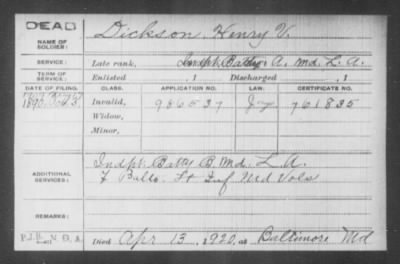 DEAD
NAME OF SOLDIER:
Dickson, Henry V.
SERVICE:
Late rank, Indpt. Batty A. Md. L. A.
TERM OF SERVICE:
Enlisted , 1 Discharged , 1
DATE OF FILING. CLASS. APPLICATION NO. LAW. CERTIFICATE NO.
Invalid, 986537 761835
Widow,
Minor,
ADDITIONAL SERVICES:
Indpt. Batty B. Md. L. A.
F Balto. Lt Inf Md Vols
REMARKS:
P.J.B.
Died Apr 13, 1920, at Baltimore Md